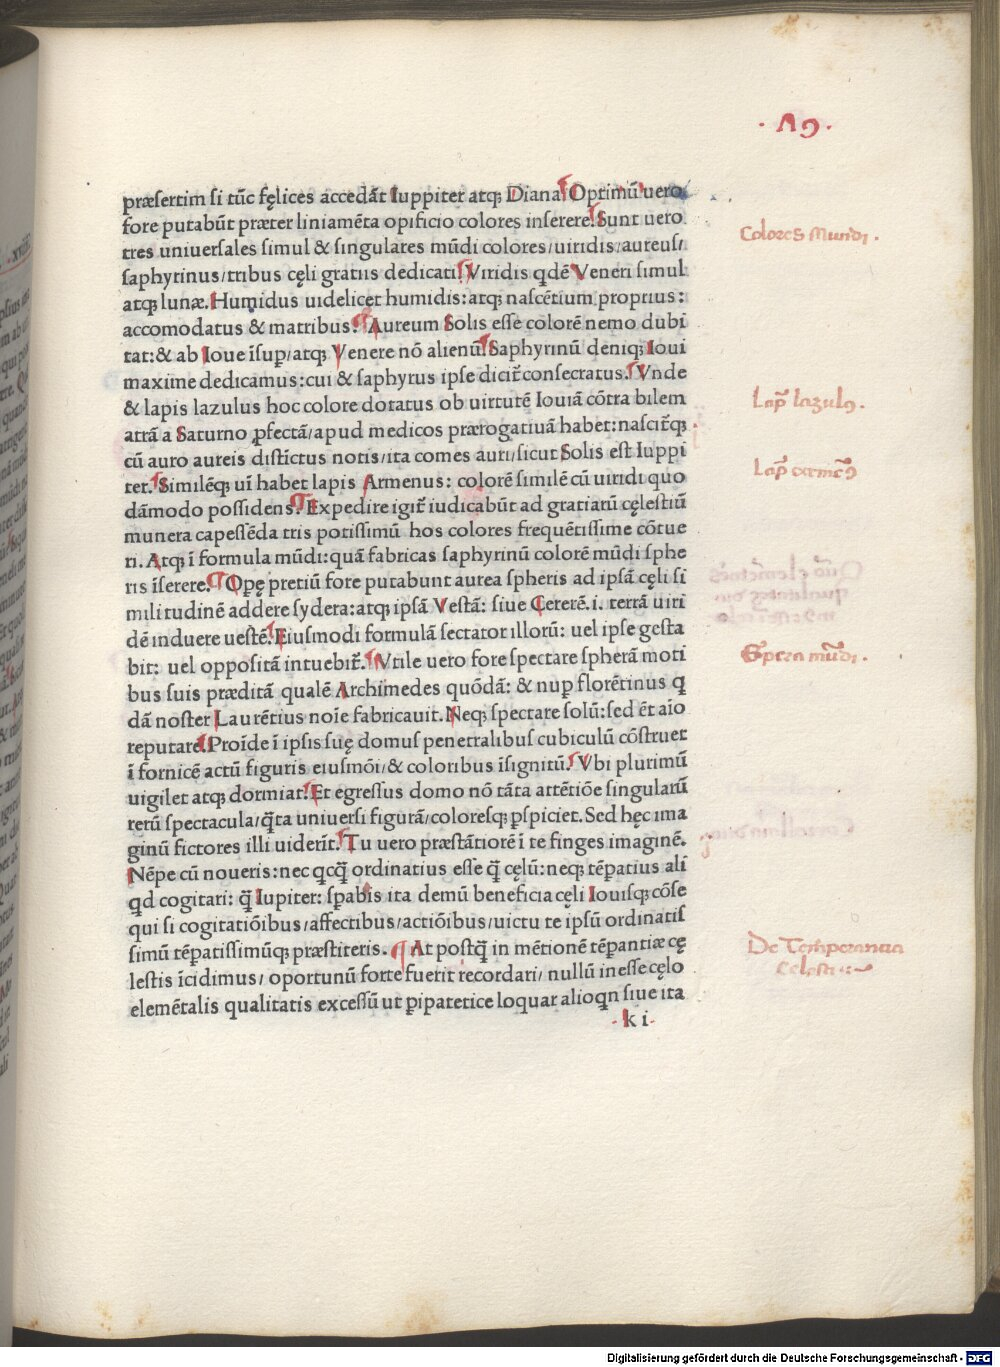 · A9 ·
præsertim si tūc fęlices accedāt Iuppiter atq; Diana. Optimū uero
fore putabūt præter liniamēta opificio colores inserere. Sunt uero
Colores Mundi .
tres uniuersales simul & singulares mūdi colores/uiridis/aureus/
saphyrinus/tribus cęli gratiis dedicati. Viridis qdē Veneri simul
atq; lunæ. Humidus uidelicet humidis: atq; nascētium proprius:
accomodatus & matribus. Aureum Solis esse colorē nemo dubi
tat: & ab Ioue īsup/atq; Venere nō alienū. Saphyrinū deniq; Ioui
maxime dedicamus: cui & saphyrus ipse dicit̄ consecratus. Vnde
& lapis lazulus hoc colore dotatus ob uirtutē Iouiā cōtra bilem
Lap̄ lazul9 .
atrā a Saturno ꝓfectā/apud medicos prærogatiuā habet: nascit̄q;
cū auro aureis distīctus notis/ita comes auri/sicut Solis est Iuppi
ter. Similēq; uī habet lapis Armenus: colorē similē cū uiridi quo
dāmodo possidens. Expedire igit̄ iudicabūt ad gratiarū cęlestiū
munera capessēda tris potissimū hos colores frequētissime cōtue
ri. Atq; ī formula mūdi: quā fabricas saphyrinū colorē mūdi sphe
ris īserere. Opę pretiū fore putabunt aurea spheris ad ipsā cęli si
militudinē addere sydera: atq; ipsā Vestā: siue Cererē .i. terrā uiri
dē induere uestē. Eiusmodi formulā sectator illorū: uel ipse gesta
bit: uel oppositā intuebit̄. Vtile uero fore spectare spherā moti
bus suis præditā qualē Archimedes quōdā: & nuꝑ florētinus q
dā noster Laurētius noīe fabricauit. Neq; spectare solū: sed ēt aīo
reputare. Proīde ī ipsis suę domus penetralibus cubiculū cōstruet
ī fornicē actū figuris eiusmōi/& coloribus īsignitū. Vbi plurimū
uigilet atq; dormiat. Et egressus domo nō tāta attētiōe singularū
rerū spectacula/q̄ta uniuersi figurā/coloresq; ꝑspiciet. Sed hęc ima
ginū fictores illi uiderīt. Tu uero præstātiorē ī te finges imaginē.
Nēpe cū noueris: nec qcq̄ ordinatius esse q̄ cęlū: neq; tēꝑatius alī
qd cogitari: q̄ Iupiter: sꝑabis ita demū beneficia cęli Iouisq; cōse
qui si cogitatiōibus/affectibus/actiōibus/uictu te ipsū ordinatis
simū tēꝑatissimūq; præstiteris. At postq̄ in mētionē tēꝑantiæ cę
De Temperancia
Celesti
lestis īcidimus/ oportunū forte fuerit recordari/ nullū inesse cęlo
elemētalis qualitatis excessū ut ꝑipatetice loquar alioqn siue ita
k i
Digitalisierung gefördert durch die Deutsche Forschungsgemeinschaft - DFG